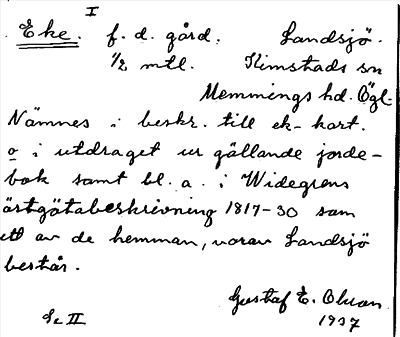 I
Eke. f. d. gård. Landsjö.
1/2 mtl. Kimstads sn
Memmings hd. Ögl.
Nämnes i beskr. till ek-kart.
o i utdraget ur gällande jorde-
bok samt bl. a. i Widegrens
östgötabeskrivning 1817-30 som
ett av de hemman, varav Landsjö
består.
Gustaf E. Olsson
Se II 1937